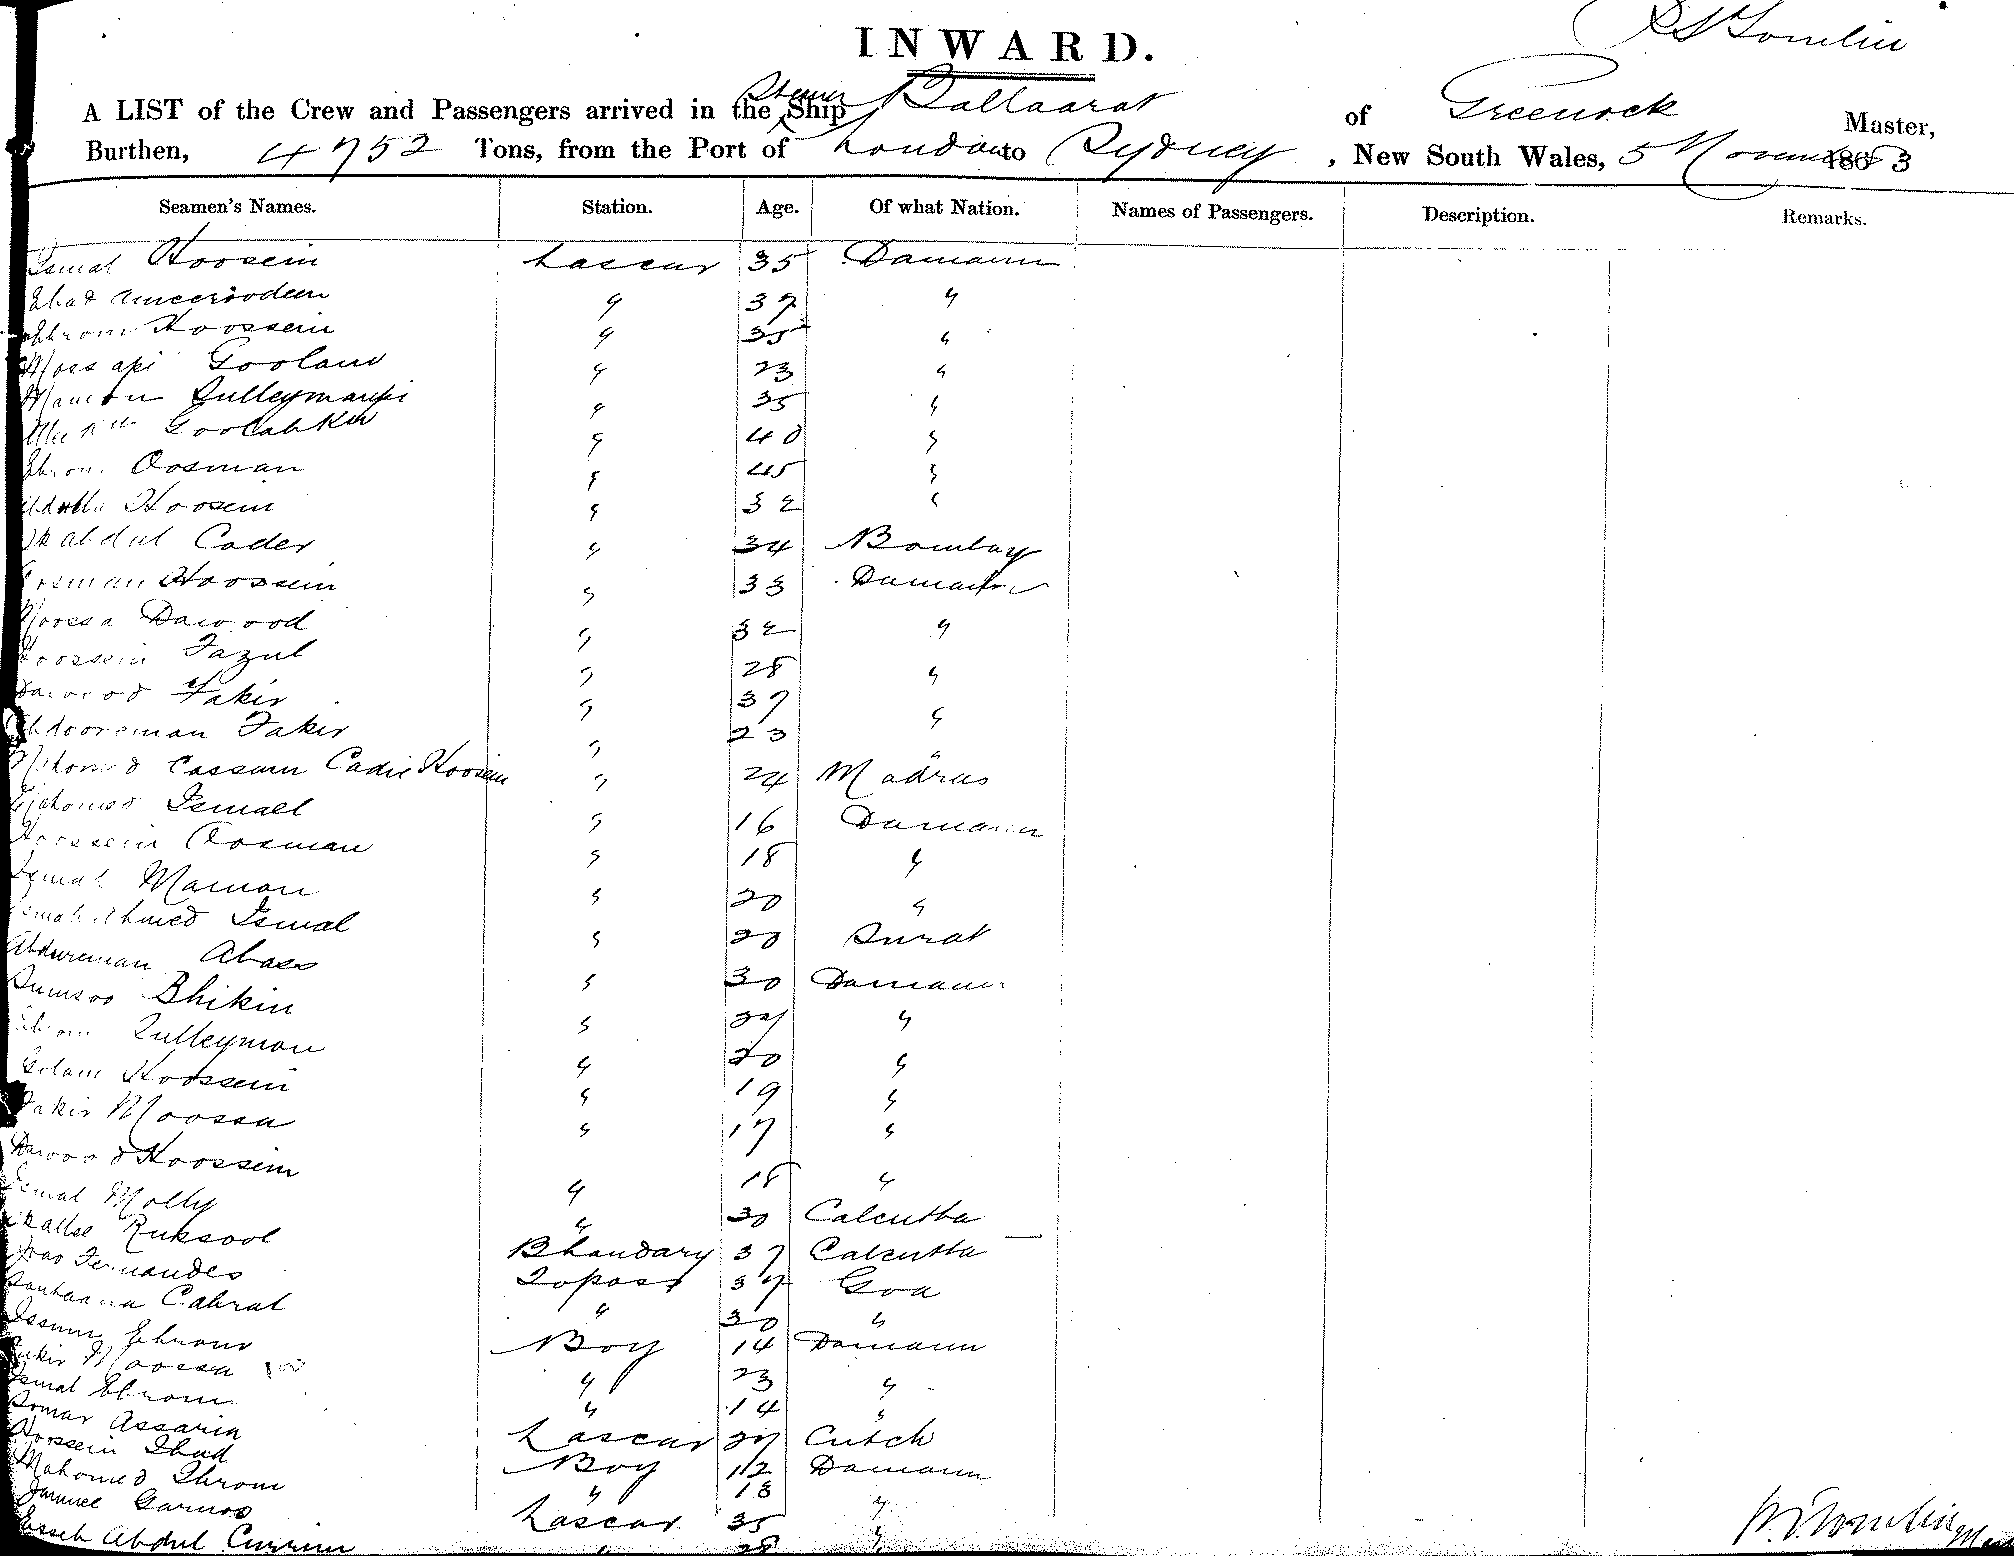 INWARD.
R S Tomlin
A LIST of the Crew and Passengers arrived in the Steamer Ship Ballaarat of Greenock Master,
Burthen, 4752 Tons, from the Port of London to Sydney, New South Wales, 5 November 1883
Seamen's Names. Station. Age. Of what Nation. Names of Passengers. Description. Remarks.
Ismal Hoosein Lascar 35 Damaun
Ebad 〃 37 〃
Ebrom Hoossein 〃 35 〃
Moosapi Goolam 〃 23 〃
Mamon Sulleymanji 〃 35 〃
〃 40 〃
Ebrom Oosman 〃 45 〃
Abdulla Hoosein 〃 32 〃
Sk abdul Cader 〃 34 Bombay
Oosman Hoossein 〃 33 Damaun
Moossa Dawood 〃 32 〃
Hoossein Fazul 〃 28 〃
Dawood Fakir 〃 37 〃
Abdooreman Fakir 〃 23 〃
Mahomed Cassum Cadir Hoosein 〃 24 Madras
Mahomed Ismael 〃 16 Damaun
Hoossein Oosman 〃 18 〃
Ismal Mamon 〃 20 〃
Ismal Ahmed Ismal 〃 20 Surat
Abdureman Abass 〃 30 Damaun
Sumsoo Bhikin 〃 〃
Ebrom Sulleymon 〃 20 〃
Golam Hoossein 〃 19 〃
Fakir Moossa 〃 17 〃
Dawood Hoossein 〃 18 〃
Ismal Molly 〃 30 Calcutta
Ruksool Bhandary 37 Calcutta
Joao Fernandes Topass 37 Goa
Santaana Cabral 〃 30 〃
Essum Ebrom Boy 14 Damaun
Fakir Moossa 〃 23 〃
Ismal Ebrom 〃 14 〃
Somar Assaria Lascar 27 Cutch
Hoossein Ibud Boy 12 Damaun
Mahomed Ibrom 〃 18 〃
Lascar 35 〃
Essek Abdul Currim 〃 28 〃
R. S. Tomlin